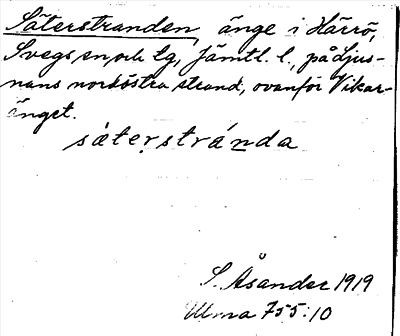 Säterstranden, änge i Härrö,
Svegs sn, och tg, Jämtl. l., på Ljus-
nans nordöstra strand, ovanför Vikar-
änget.
sä̀terstránda
S. Åsander 1919
Ulma 755:10